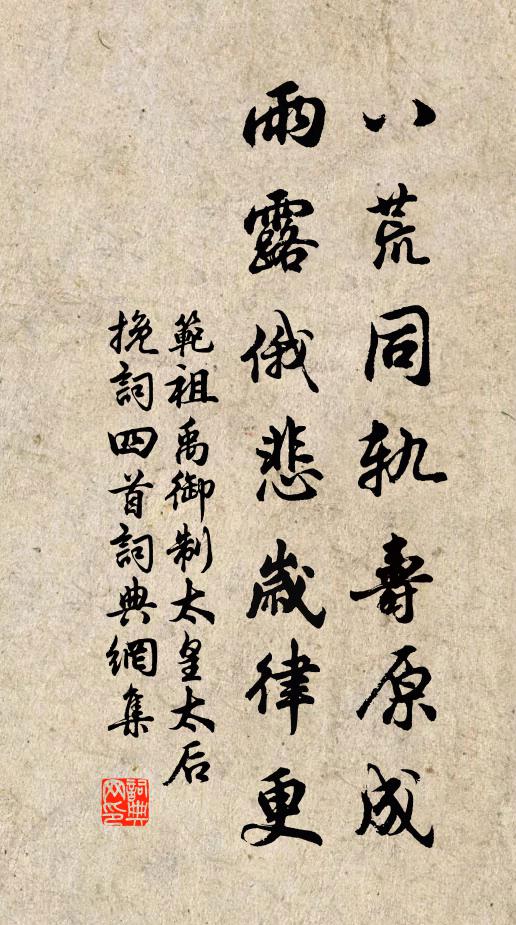 八荒同軌壽原成
雨露俄悲歲律更
範祖禹御制太皇太后
挽詞四首詞典網集
詞典網印